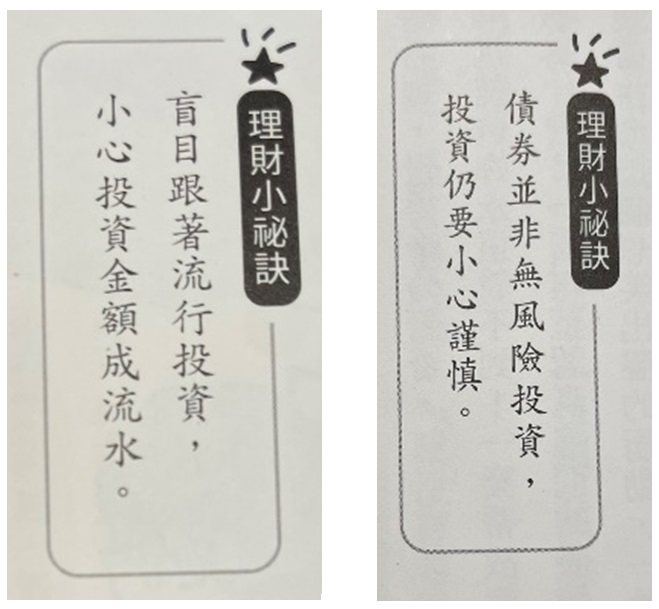 理財小祕訣
盲目跟著流行投資，
小心投資金額成流水。
理財小祕訣
債券並非無風險投資，
投資仍要小心謹慎。